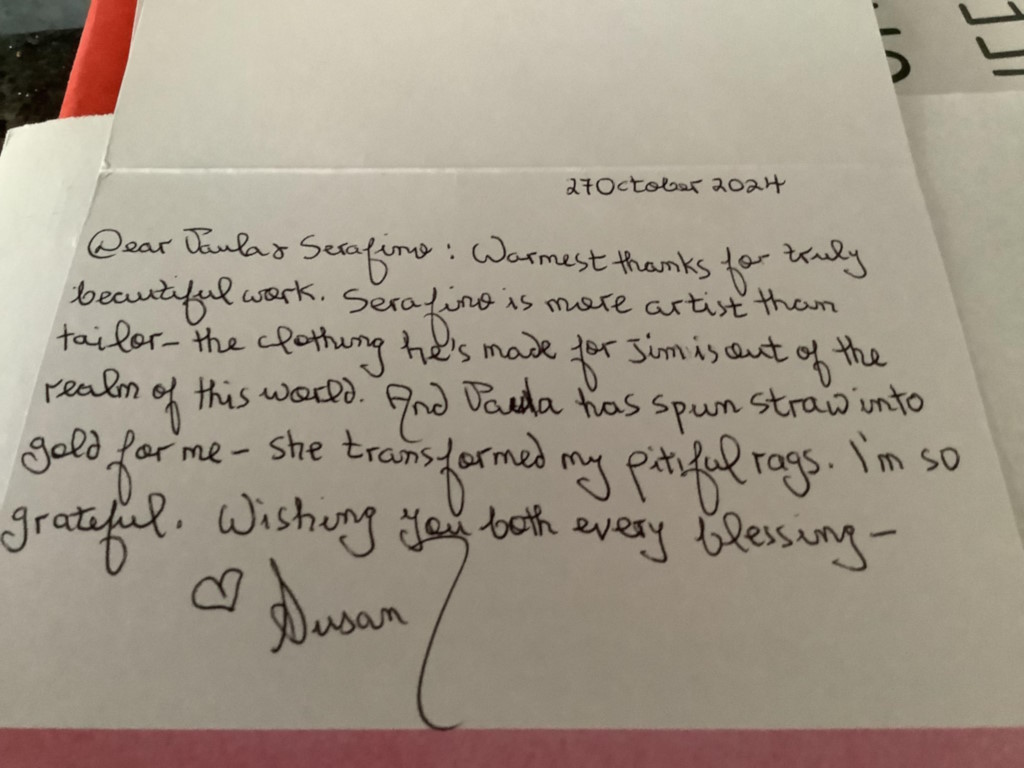 27 October 2024
Dear Paula & Serafino: Warmest thanks for truly
beautiful work. Serafino is more artist than
tailor – the clothing he's made for Jim is out of the
realm of this world. And Paula has spun straw into
gold for me – she transformed my pitiful rags. I'm so
grateful. Wishing you both every blessing –
♡ Susan